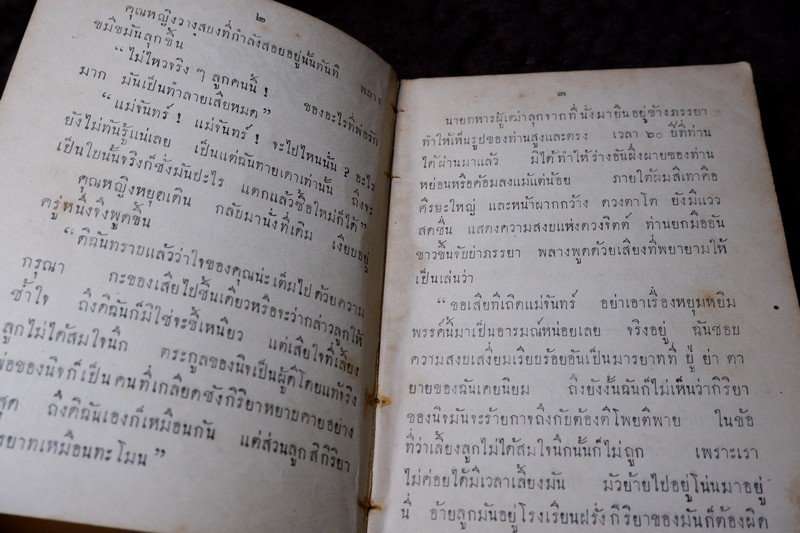 ๒
คุณหญิงวางุสยงที่กำลังสอยอยู่นั้นทันที พลาง
ขมีขมันลุกขึ้น
“ไม่ไหวจริง ๆ ลูกคนนี้ ! ของอะไรที่พ่อรัก
มาก มันเป็นทำลายเสียหมด”
“แม่จันทร์ ! แม่จันทร์ ! จะไปไหนนั้น ? อะไร
ยังไม่ทันรู้แน่เลย เป็นแต่ฉันทายเดาเท่านั้น ถึงจะ
เป็นใบนั้นจริงก็ซั่งมันปะไร แตกแล้วซื้อใหม่ก็ได้”
คุณหญิงหยุดเดิน กลับมานั่งที่เดิม เงียบอยู่
ครู่หนึ่งจึงพูดขึ้น
“ดิฉันทราบแล้วว่าใจของคุณน่ะเต็มไปด้วยความ
กรุณา กะของเสียไปชิ้นเดียวหรือจะว่ากล่าวลูกให้
ช้ำใจ ถึงดิฉันก็มิใช่จะขี้เหนียว แต่เสียใจที่เลี้ยง
ลูกไม่ได้สมใจนึก ตระกูลของนิจเป็นผู้ดีโดยแท้จริง
พ่อของนิจก็เป็นคนที่เกลียดชังกิริยาหยาบคายอย่าง
สุด ถึงดิฉันเองก็เหมือนกัน แต่ส่วนลูกสิกิริยา
รยาทเหมือนทะโมน”
๓
นายทหารผู้เฒ่าลุกจากที่นั่งมายืนอยู่ข้างภรรยา
ทำให้เห็นรูปของท่านสูงและตรง เวลา ๖๐ ปีที่ท่าน
ได้ผ่านมาแล้ว มิได้ทำให้ร่างอันผึ่งผายของท่าน
หย่อนหรือค้อมลงแม้แต่น้อย ภายใต้ผมสีเทาคือ
ศีรษะใหญ่ และหน้าผากกว้าง ดวงตาโต ยังมีแวว
สดชื่น แสดงความสงบแห่งดวงจิตต์ ท่านยกมืออัน
ขาวขึ้นจับบ่าภรรยา พลางพูดด้วยเสียงที่พยายามให้
เป็นเล่นว่า
“ขอเสียทีเถิดแม่จันทร์ อย่าเอาเรื่องหยุมหยิม
พรรค์นี้มาเป็นอารมณ์หน่อยเลย จริงอยู่ ฉันชอบ
ความสงบเสงี่ยมเรียบร้อยอันเป็นมารยาทที่ ปู่ ย่า ตา
ยายของฉันเคยนิยม ถึงยังงั้นฉันก็ไม่เห็นว่ากิริยา
ของนิจมันจะร้ายกาจถึงกับต้องตีโพยตีพาย ในข้อ
ที่ว่าเลี้ยงลูกไม่ได้สมใจนึกนั้นก็ไม่ถูก เพราะเรา
ไม่ค่อยได้มีเวลาเลี้ยงมัน มัวย้ายไปอยู่โน่นมาอยู่
นี่ อ้ายลูกมันอยู่โรงเรียนฝรั่ง กิริยาของมันก็ต้องผิด